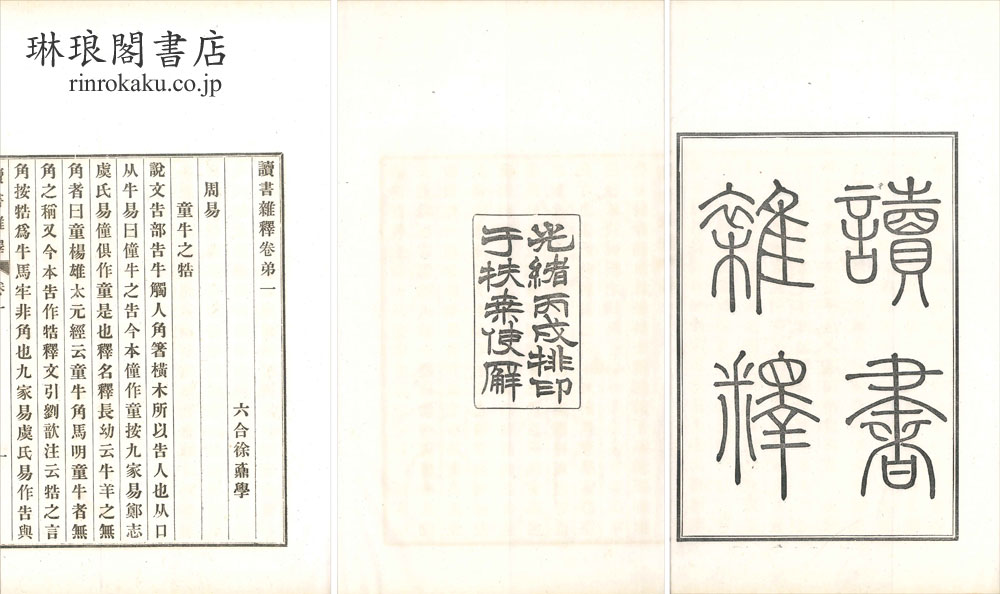 琳琅閣書店
rinrokaku.co.jp
讀書
雜釋
光緒丙戌排印
于扶桑使廨
讀書雜釋卷弟一
六合徐鼒學
周易
童牛之牿
說文告部告牛觸人角箸橫木所以告人也从口
从牛易曰僮牛之告今本僮作童按九家易鄭志
虞氏易僮俱作童是也釋名釋長幼云牛羊之無
角者曰童楊雄太元經云童牛角馬明童牛者無
角之稱又今本告作牿釋文引劉歆注云牿之言
角按牿爲牛馬牢非角也九家易虞氏易作告與
讀書雜釋 卷一 一